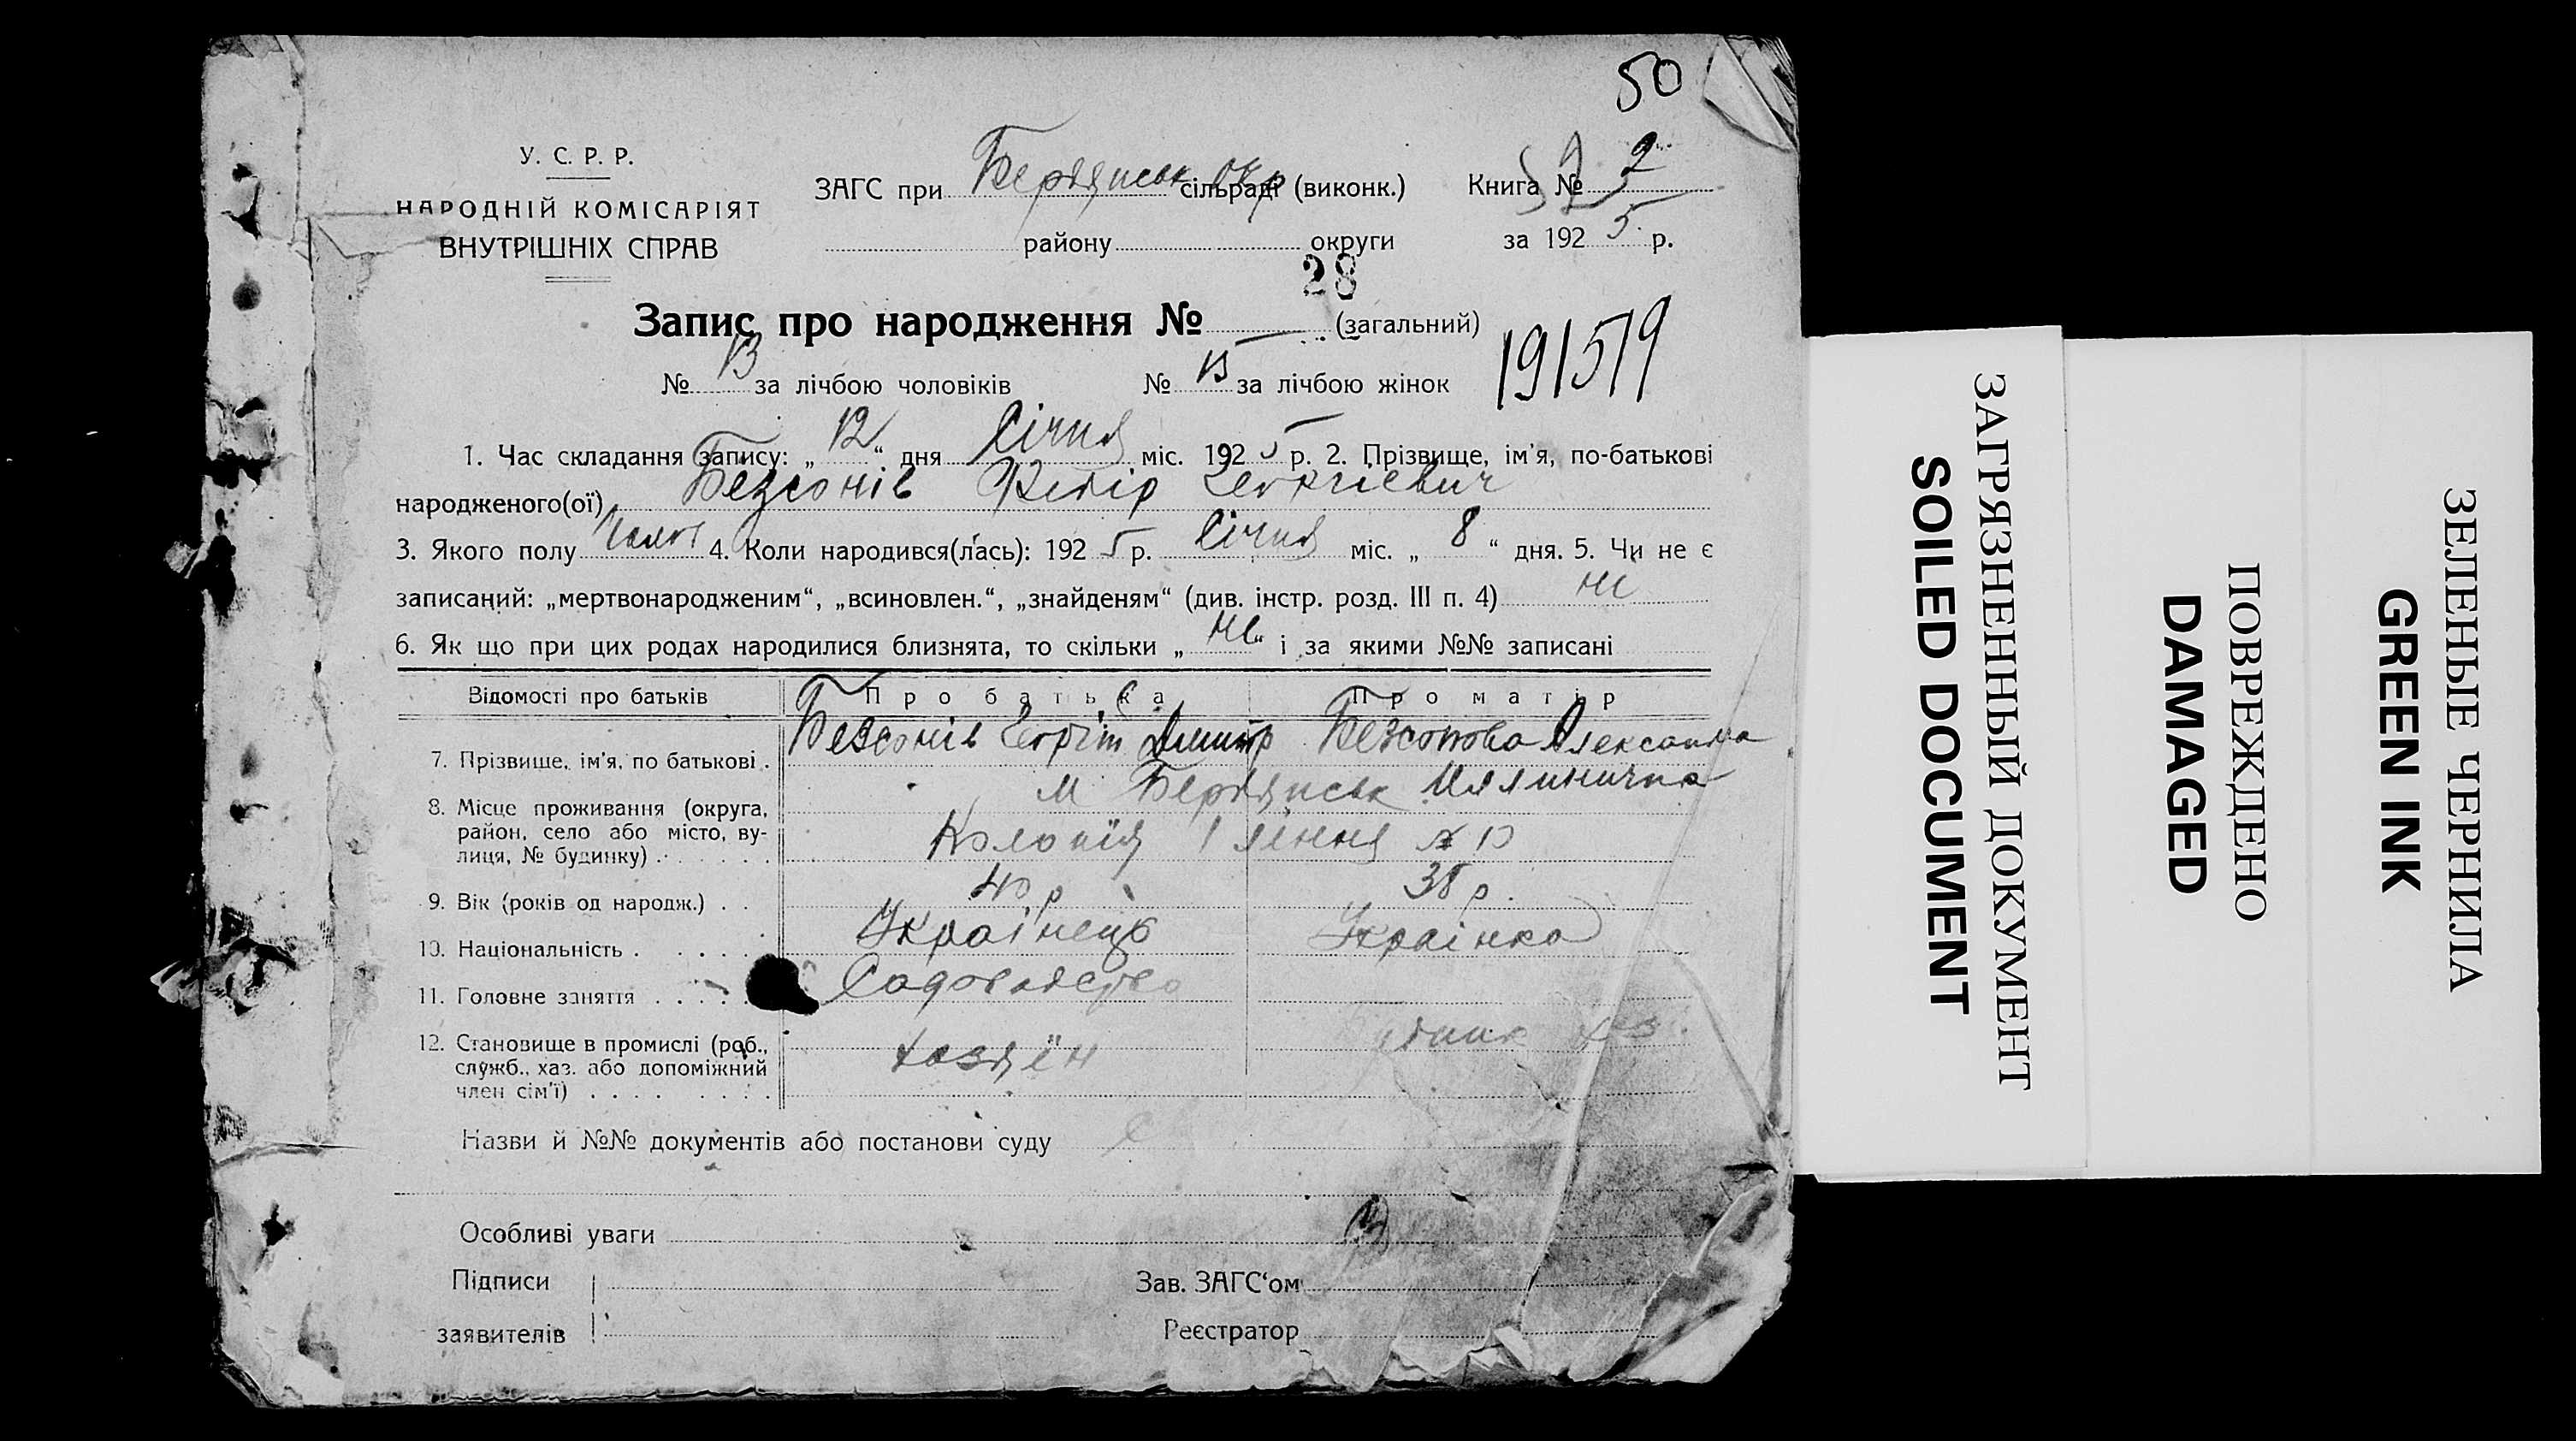 50
У. С. Р. Р.
НАРОДНІЙ КОМІСАРІЯТ
ВНУТРІШНІХ СПРАВ
ЗАГС при Бердянськ окр сільраді (виконк.) Книга № 2
району округи за 1925 р.
28
Запис про народження № (загальний)
№ 13 за лічбою чоловіків № 15 за лічбою жінок
191519
1. Час складання запису: „ 12 “ дня Січня міс. 1925 р. 2. Прізвище, ім'я, по-батькові
народженого(ої) Безсонів Федір Георгієвич
3. Якого полу Чолов 4. Коли народився(лась): 1925 р. Січня міс. „ 8 “ дня. 5. Чи не є
записаний: „мертвонародженим“, „всиновлен.“, „знайденям“ (див. інстр. розд. III п. 4) ні
6. Як що при цих родах народилися близнята, то скільки „ “ і за якими №№ записані
Відомості про батьків Про батька Про матір
7. Прізвище, ім'я, по батькові . Безсонів Дмитр Безсонова Александра
м Бердянськ
8. Місце проживання (округа, район, село або місто, вулиця, № будинку) . . . . . . Колонія 1 лінія № 10
9. Вік (років од народж.) . . 40 р 38 р.
10. Національність . . . . . Українець Українка
11. Головне заняття . . . . . Садоводство
12. Становище в промислі (роб., служб., хаз. або допоміжний член сім'ї) . . . . . . . . хазяїн
Назви й №№ документів або постанови суду
Особливі уваги
Підписи
заявителів
Зав. ЗАГС‘ом
Реєстратор
ЗАГРЯЗНЕННЫЙ ДОКУМЕНТ
SOILED DOCUMENT
ПОВРЕЖДЕНО
DAMAGED
ЗЕЛЕНЫЕ ЧЕРНИЛА
GREEN INK